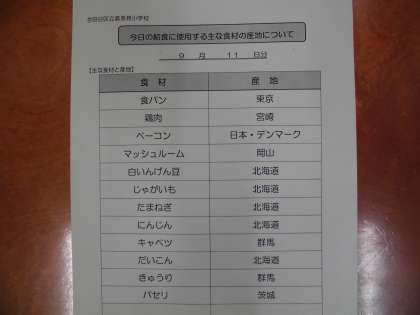 今日の給食に使用する主な食材の産地について
9 月 11 日分
【主な食材と産地】
食 材 産 地
食パン 東京
鶏肉 宮崎
ベーコン 日本・デンマーク
マッシュルーム 岡山
白いんげん豆 北海道
じゃがいも 北海道
たまねぎ 北海道
にんじん 北海道
キャベツ 群馬
だいこん 北海道
きゅうり 群馬
パセリ 茨城